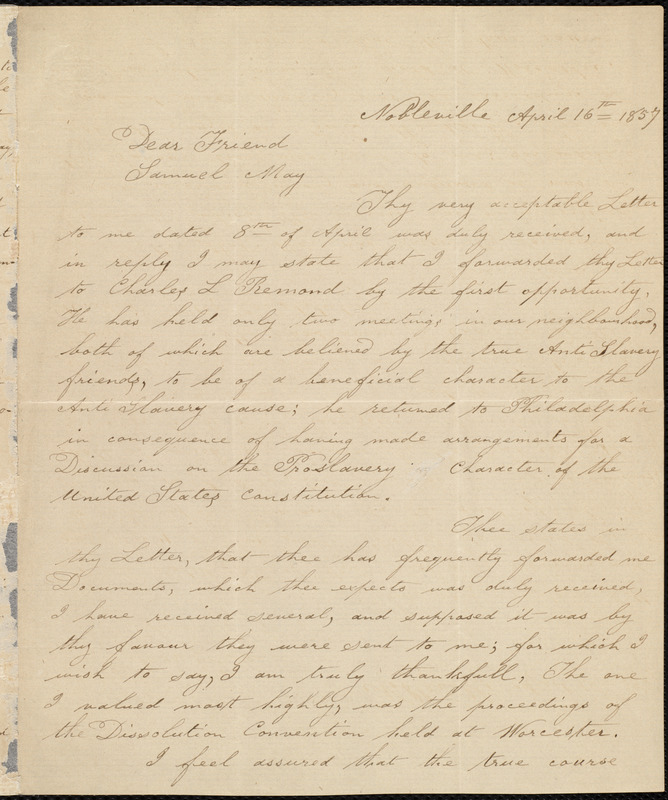 Nobleville April 16th 1857
Dear Friend
Samuel May
Thy very acceptable Letter
to me dated 8th of April was duly received, and
in reply I may state that I forwarded thy Letter
to Charles L Remond by the first opportunity,
He has held only two meetings in our neighbourhood,
both of which are believed by the true Anti Slavery
friends, to be of a beneficial character to the
Anti Slavery cause; he returned to Philadelphia
in consequence of having made arrangements for a
Discussion on the Proslavery Character of the
United States Constitution.
Thee states in
thy Letter, that thee has frequently forwarded me
Documents, which thee expects was duly received,
I have received several, and supposed it was by
thy favour they were sent to me; for which I
wish to say, I am truly thankfull, The one
I valued most highly, was the proceedings of
the Dissolution Convention held at Worcester.
I feel assured that the true course